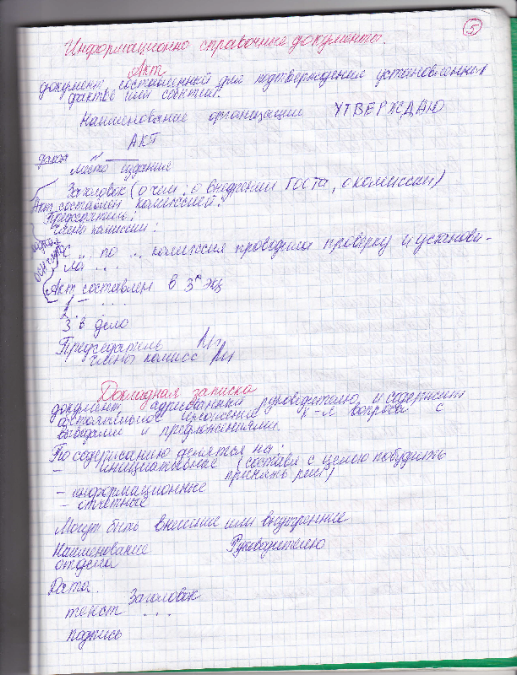 5
Информационно справочные документы.
Акт
документ, составленный для подтверждения установленных
фактов или событий.
Наименование организации УТВЕРЖДАЮ
АКТ
дата
место издания
Заголовок (о чем, о внедрении ГОСТа, о комиссии)
Акт составлен комиссией:
Председатель:
члены комиссии:
С ... по ... комиссия проводила проверку и установи-
ла ...
Акт составлен в 3х экз
1 - ....
3 в дело
Председатель
члены комисс
Докладная записка
документ, адресованный руководителю, и содержит
изложение к-л вопроса с
выводами и предложениями.
По содержанию делятся на:
- инициативные (составл с целью побудить
принять реш)
- информационные
- отчетные
Могут быть внешние или внутренние
Наименование Руководителю
отдела
Дата.
Заголовок
текст ...
подпись